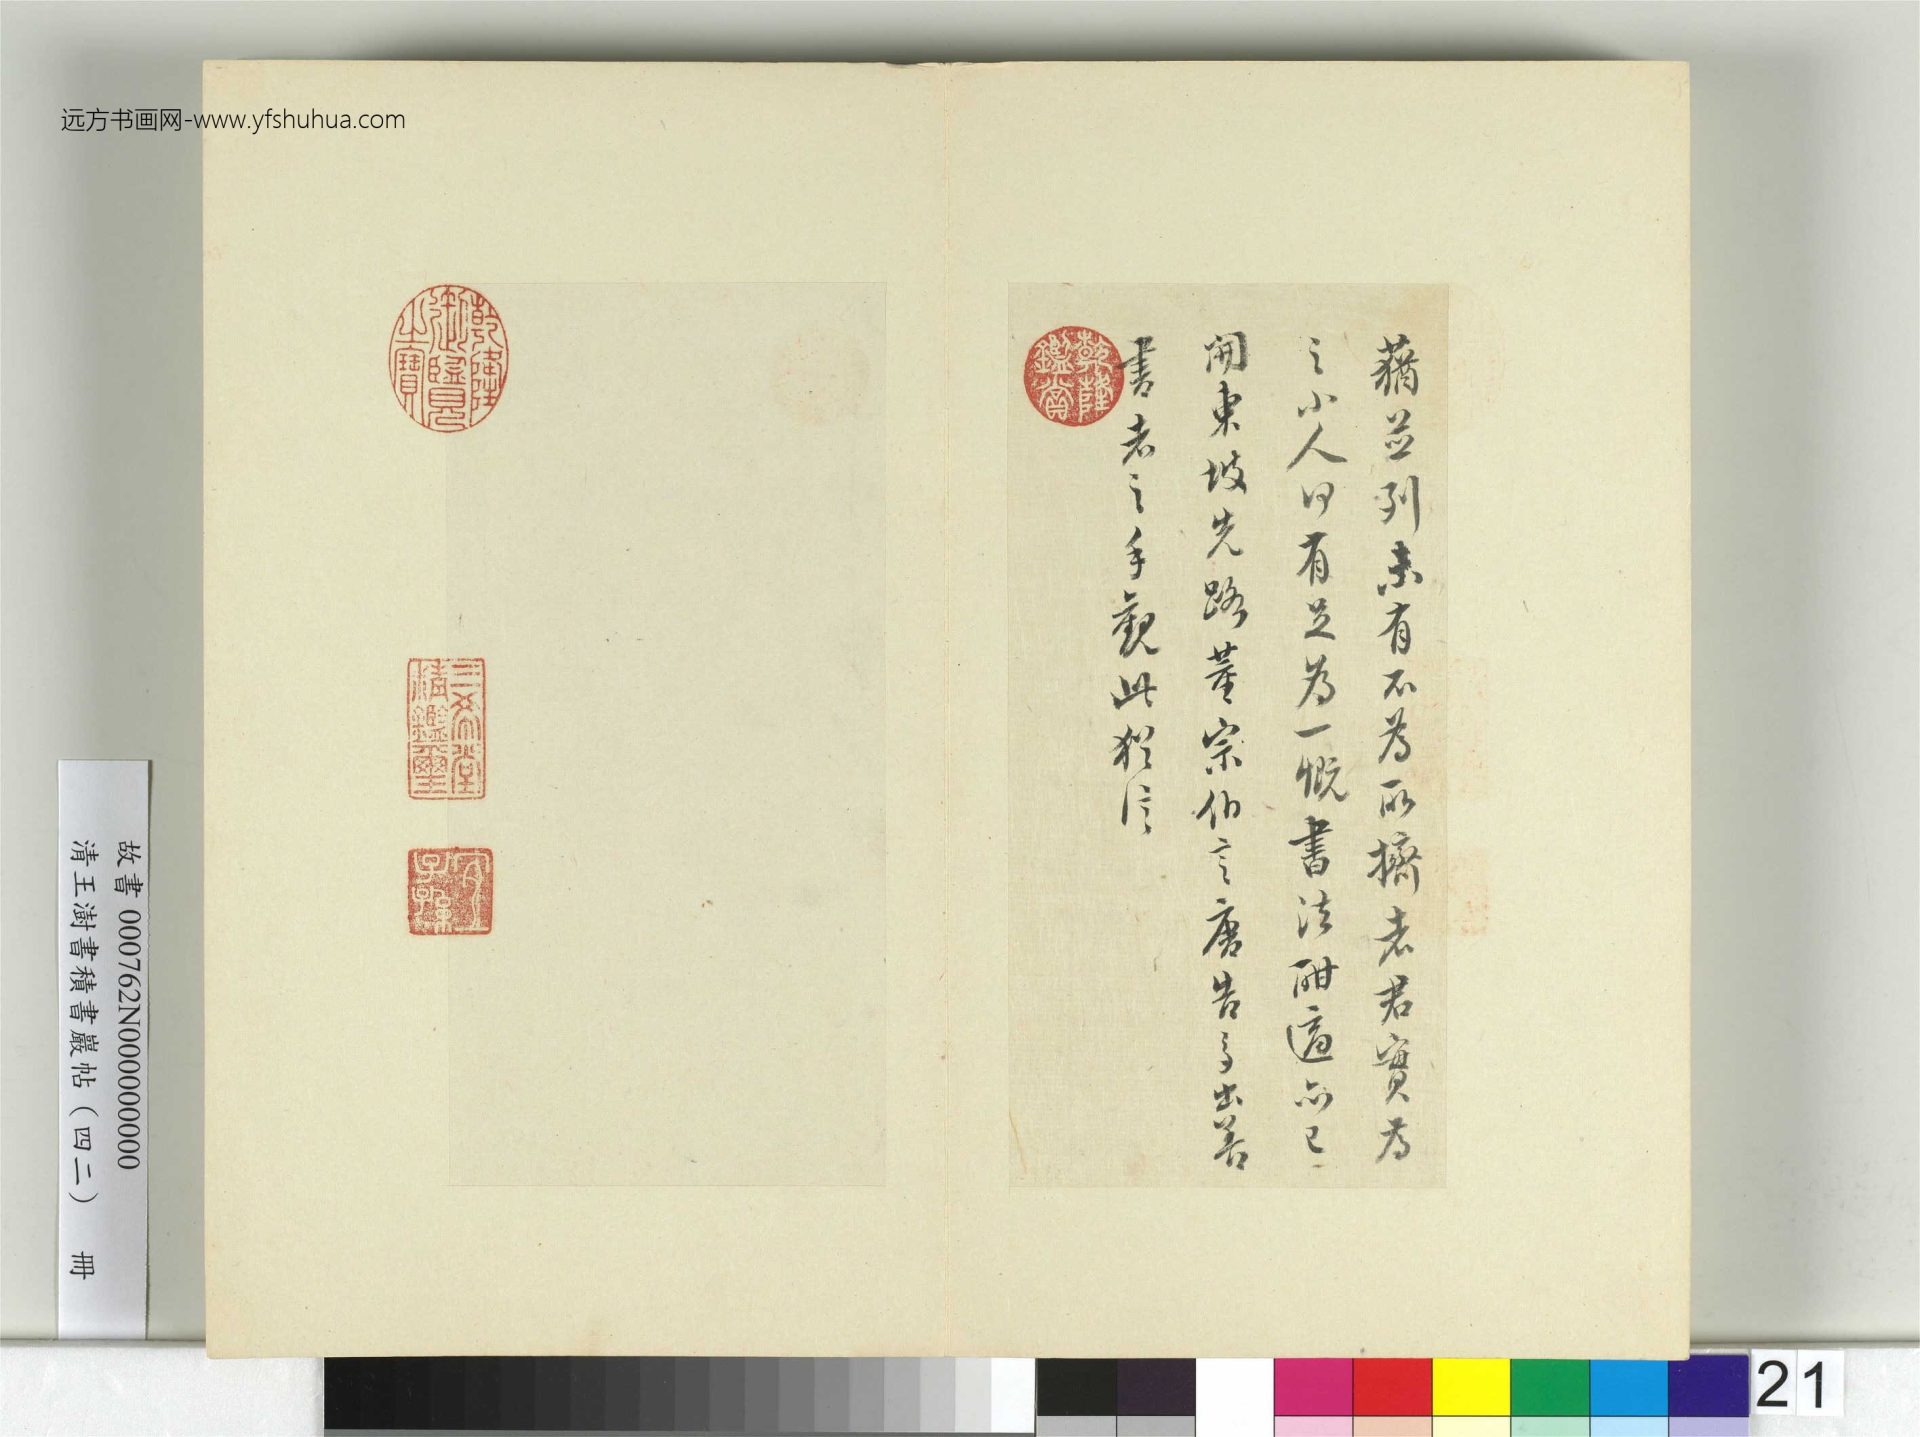 远方书画网-www.yfshuhua.com
蕕並列未有不為所擠者君實為
之小人何有足為一慨書法酣適亦已
開東坡先路董宗伯言唐告多出善
書者之手觀此猶信
乾隆鑑賞
乾隆御覽之寶
三希堂精鑑璽
宜子孫
故書 000762N000000000
清王澍書積書巖帖（四二） 冊
21